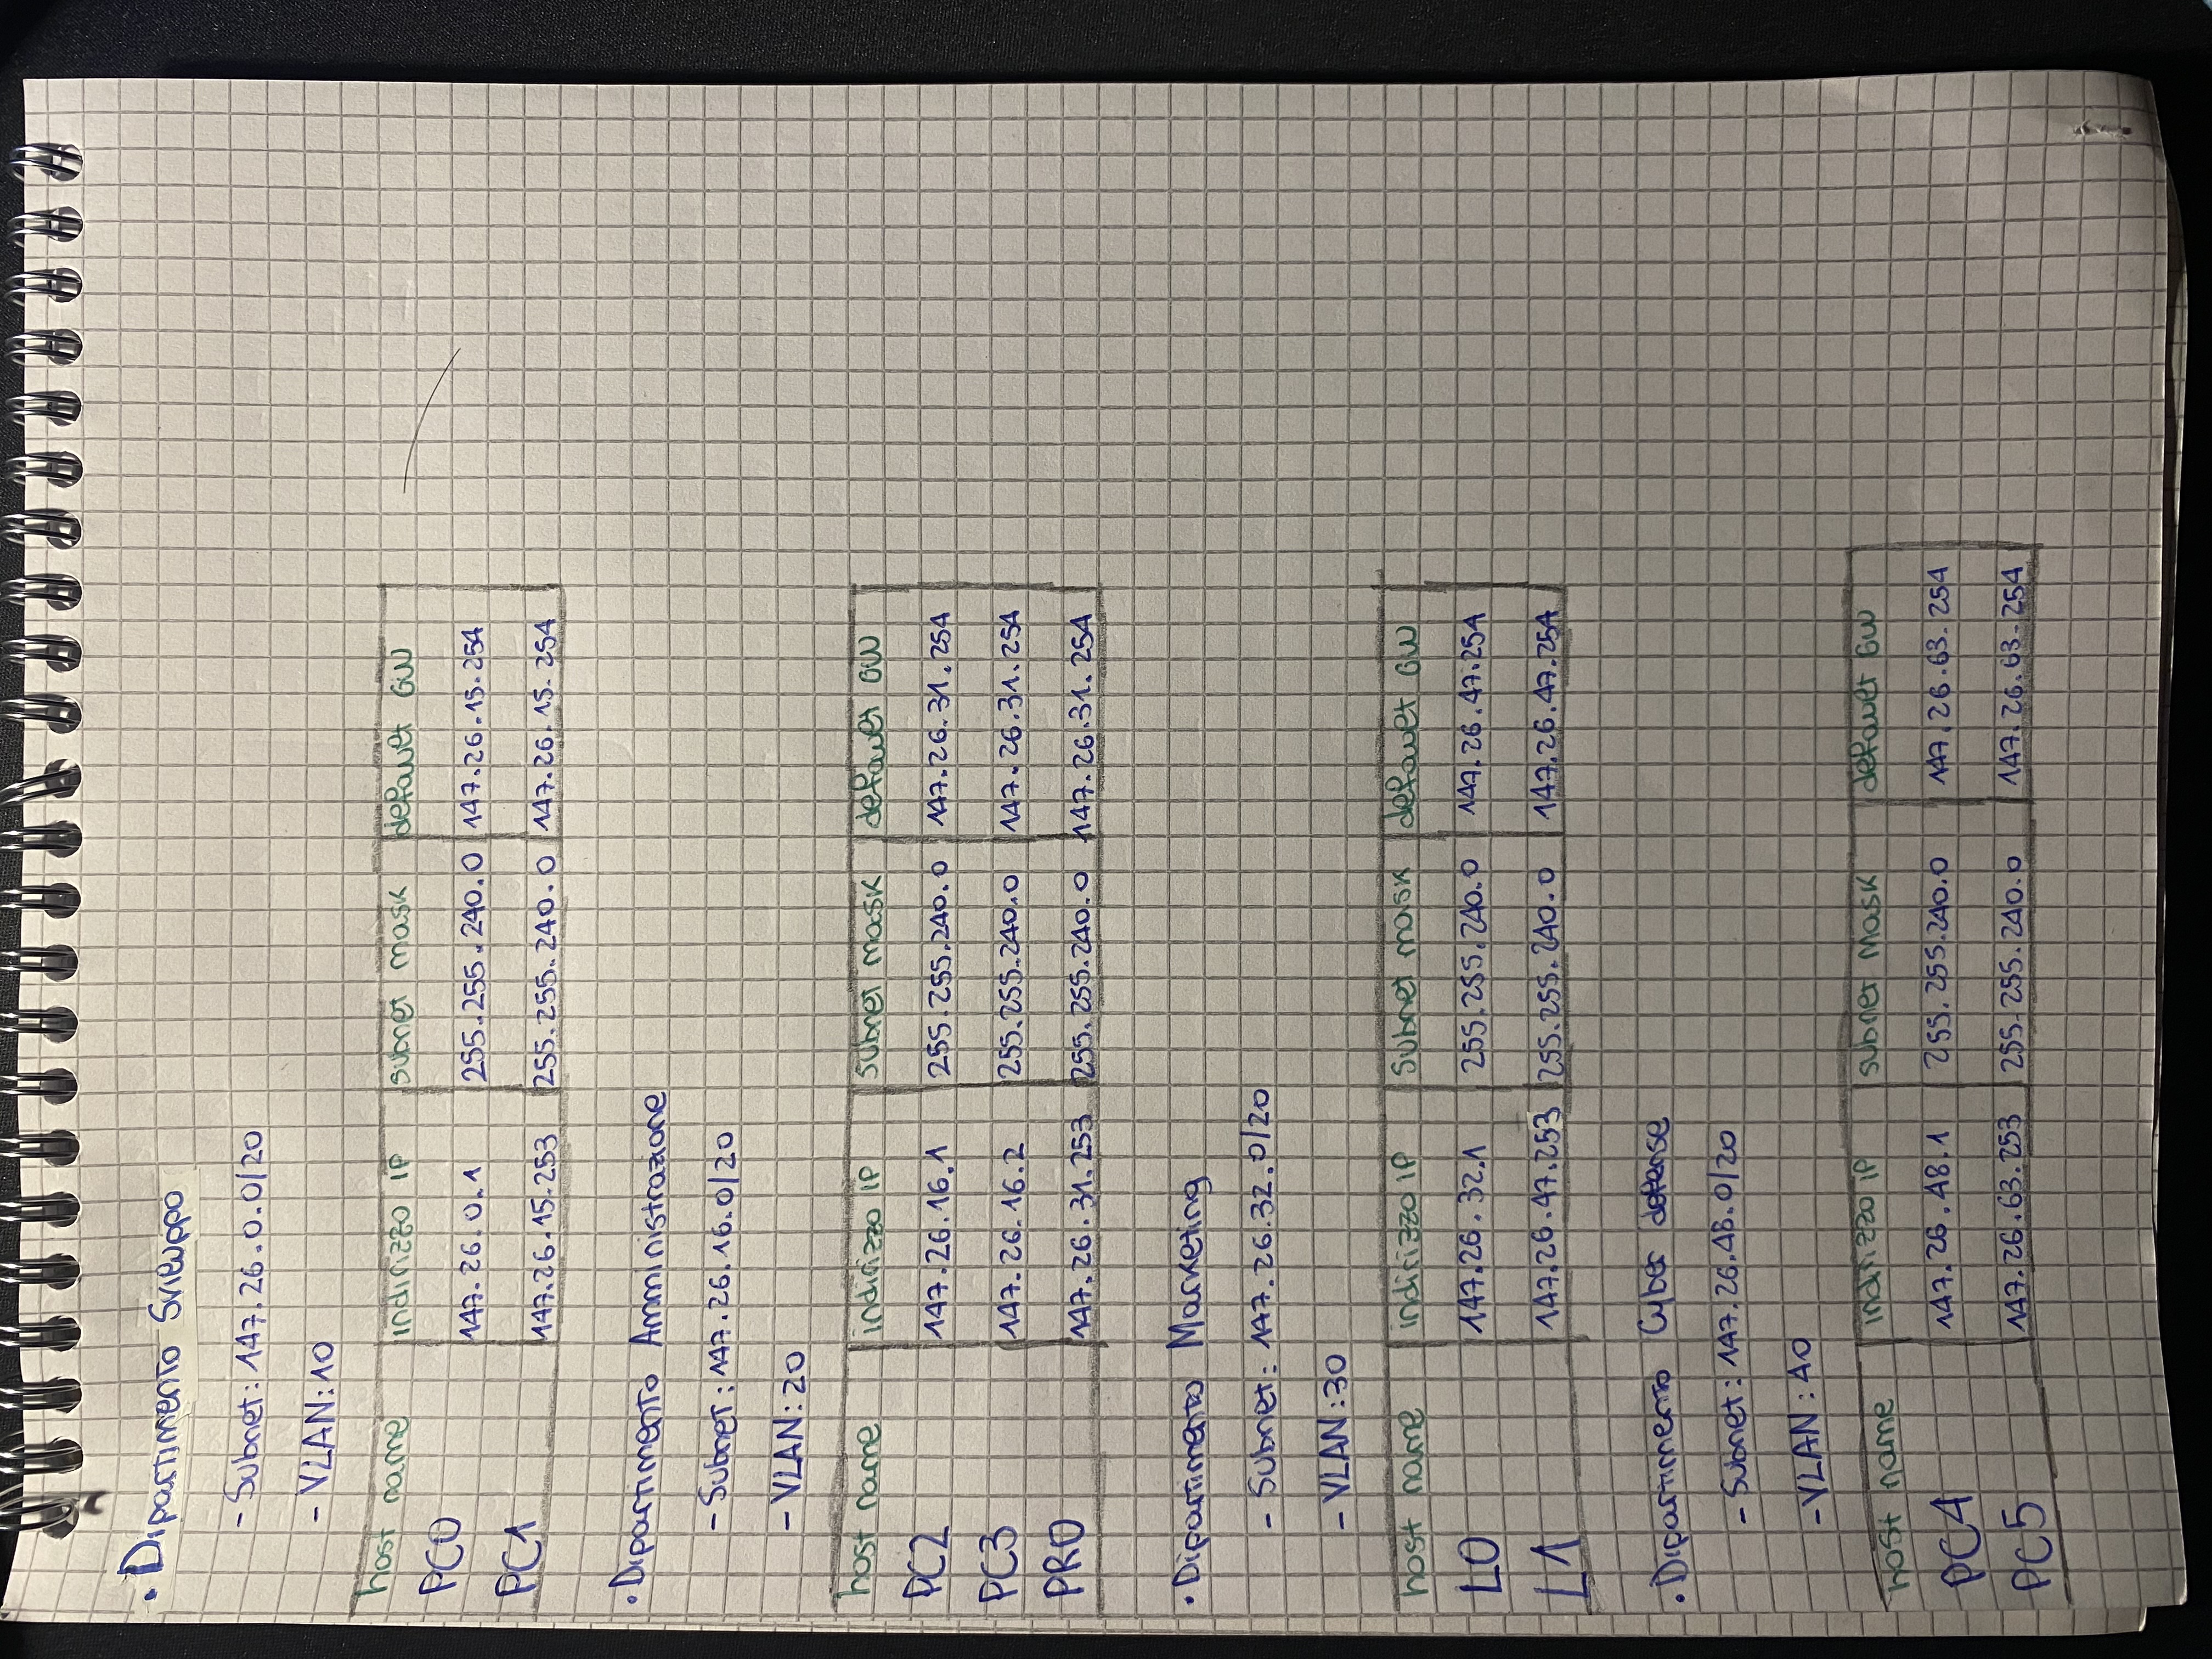 • Dipartimento Sviluppo
- Subnet: 147.26.0.0/20
- VLAN: 10
host name indirizzo IP subnet mask default GW
PC0 147.26.0.1 255.255.240.0 147.26.15.254
PC1 147.26.15.253 255.255.240.0 147.26.15.254
• Dipartimento Amministrazione
- Subnet: 147.26.16.0/20
- VLAN: 20
host name indirizzo IP subnet mask default GW
PC2 147.26.16.1 255.255.240.0 147.26.31.254
PC3 147.26.16.2 255.255.240.0 147.26.31.254
PR0 147.26.31.253 255.255.240.0 147.26.31.254
• Dipartimento Marketing
- Subnet: 147.26.32.0/20
- VLAN: 30
host name indirizzo IP subnet mask default GW
L0 147.26.32.1 255.255.240.0 147.26.47.254
L1 147.26.47.253 255.255.240.0 147.26.47.254
• Dipartimento Cyber defense
- Subnet: 147.26.48.0/20
- VLAN: 40
host name indirizzo IP subnet mask default GW
PC4 147.26.48.1 255.255.240.0 147.26.63.254
PC5 147.26.63.253 255.255.240.0 147.26.63.254